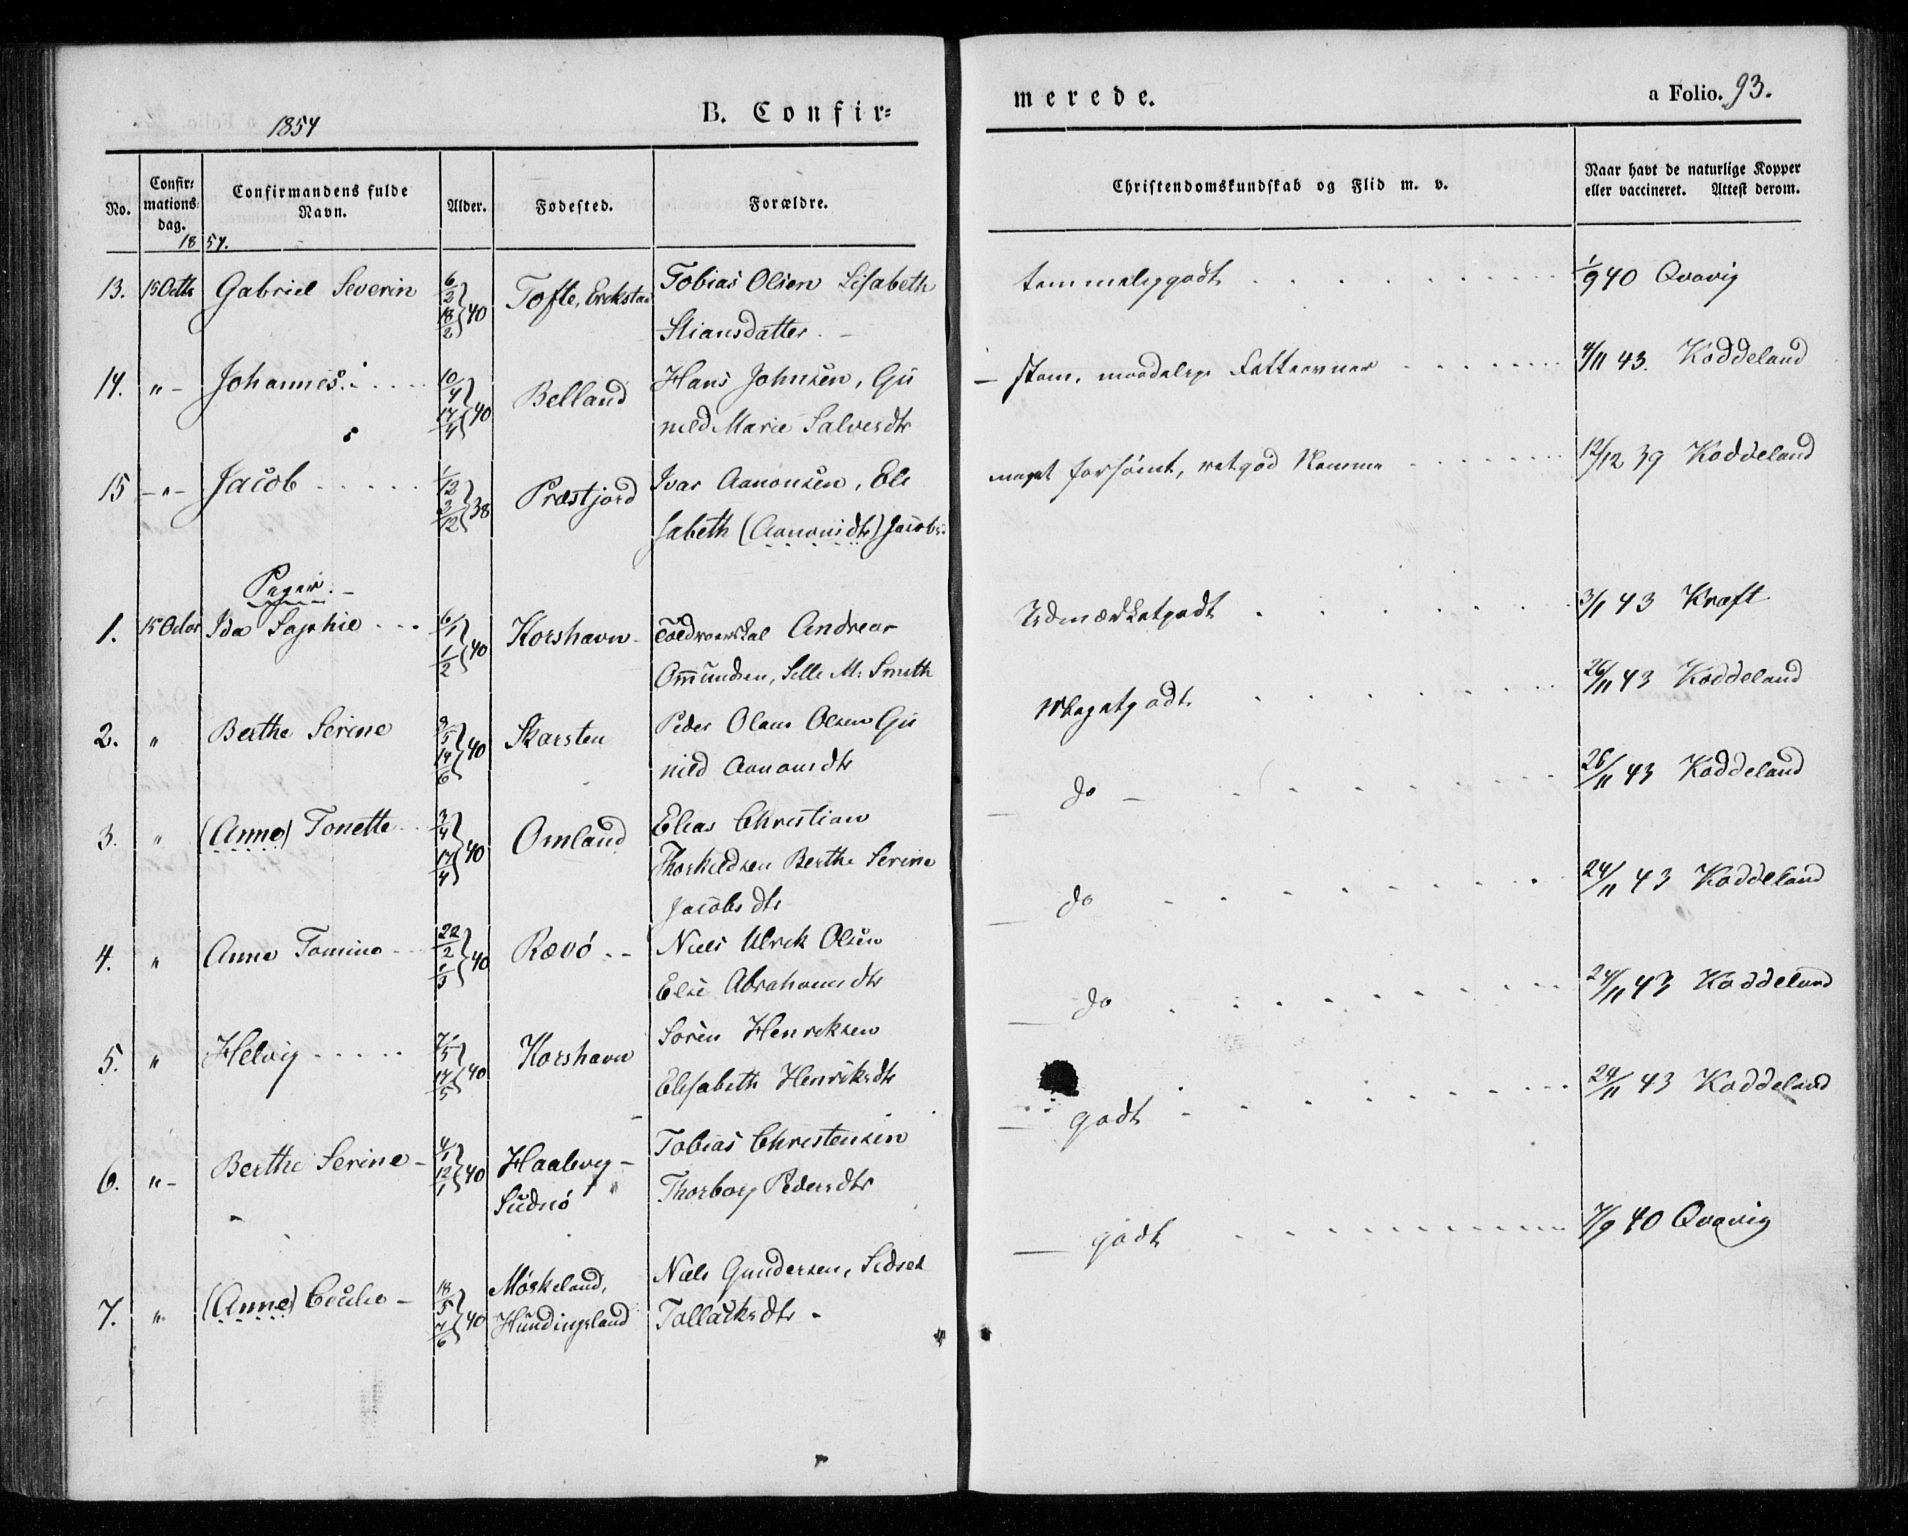 1854
B. Confir=
merede.
a Folio. 93.
No.
Confir=
mations=
dag.
Confirmandens fulde
Navn.
Alder.
Fødested.
Forældre.
Christendomskundskab og Flid m. v.
Naar havt de naturlige Kopper
eller vaccineret. Attest derom.
1854.
13. 15 Octb Gabriel Severin 6/2 18/2 40 Tofte, Tobias Olsen Lisabeth
Stiansdatter. -
temmeliggodt 1/9 40 Qvavig
14. " - Johannes 10/4 17/4 40 Belland Hans Johnsen, Gu
nild Marie Salvesdtr
- tem. maadelige 4/11 43. Koddeland
15 - " - Jacob 1/12 3/12 38 Præstjord Ivar Aanonsen, Eli
sabeth (Aanonsdtr) Jacobs.
meget forsømt, 12/12 39 Koddeland
Piger. -
1. 15 Octbr Ida Sophie 6/1 1/2 40 Korshavn - Andreas
Ommundsen, M. Smith
Udmærketgodt 3/1 43 Kraft
2. " Berthe Serine 3/5 14/6 40 Skarsten Peder Olaus Olsen Gu
nild Aanonsdtr
Megetgodt 26/11 43 Koddeland
3. " (Anne) Tonette 3/4 17/4 40 Omland Elias Christian
Thorkildsen Berthe Serine
Jacobsdtr
do - 26/11 43 Koddeland
4. " Anne Tomine 22/2 1/3 40 Rævø - Niels Ulrik Olsen
Else Abrahamsdtr
do 24/11 43 Koddeland
5. " Helvig 7/5 17/5 40 Korshavn Søren Henriksen
Elisabeth Henriksdtr
do 24/11 43 Koddeland
6. " - Berthe Serine - 4/1 12/1 40 Haalevig -
Sudnø
Tobias Christensen
Thorborg Pedersdtr
godt 24/11 43 Koddeland
7. " (Anne) - 18/5 7/6 40 Møskeland,
Hundingsland
Niels Gundersen, Sidsel
Tallaksdtr -
godt 7/9 40 Qvavig